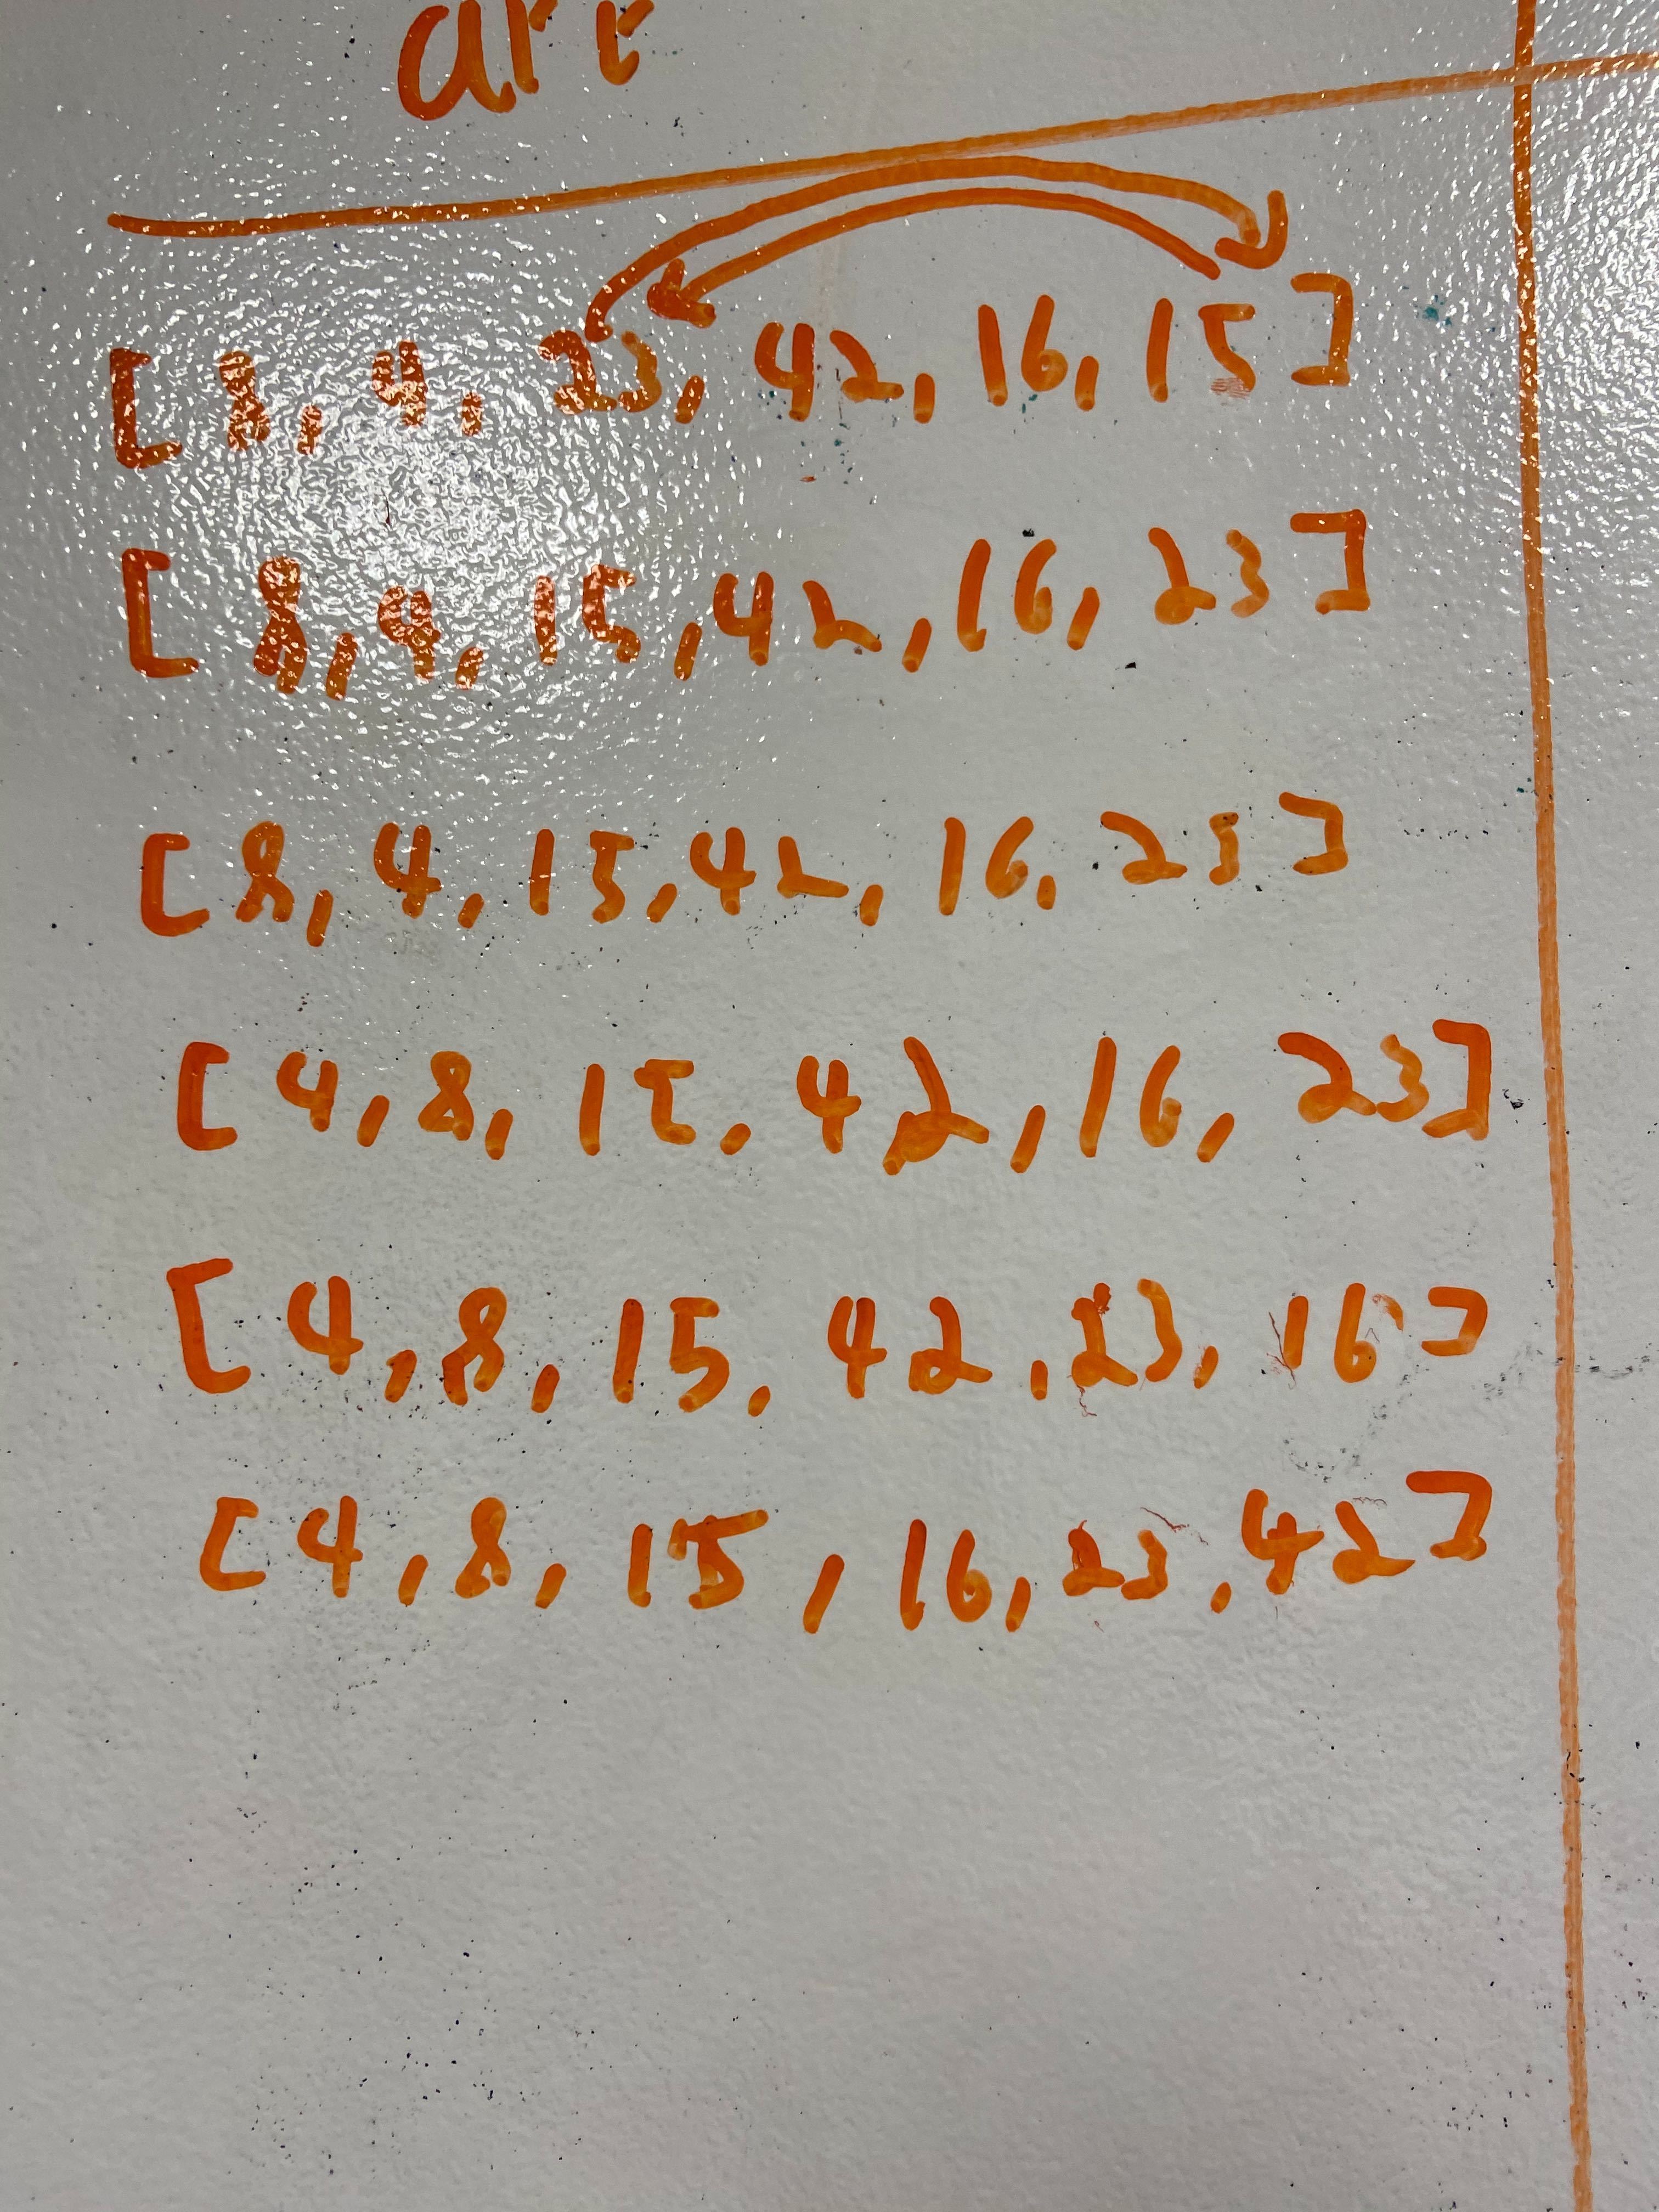 arr
[8, 4, 23, 42, 16, 15]
[8, 4, 15, 42, 16, 23]
[8, 4, 15, 42, 16, 23]
[4, 8, 15, 42, 16, 23]
[4, 8, 15, 42, 23, 16]
[4, 8, 15, 16, 23, 42]